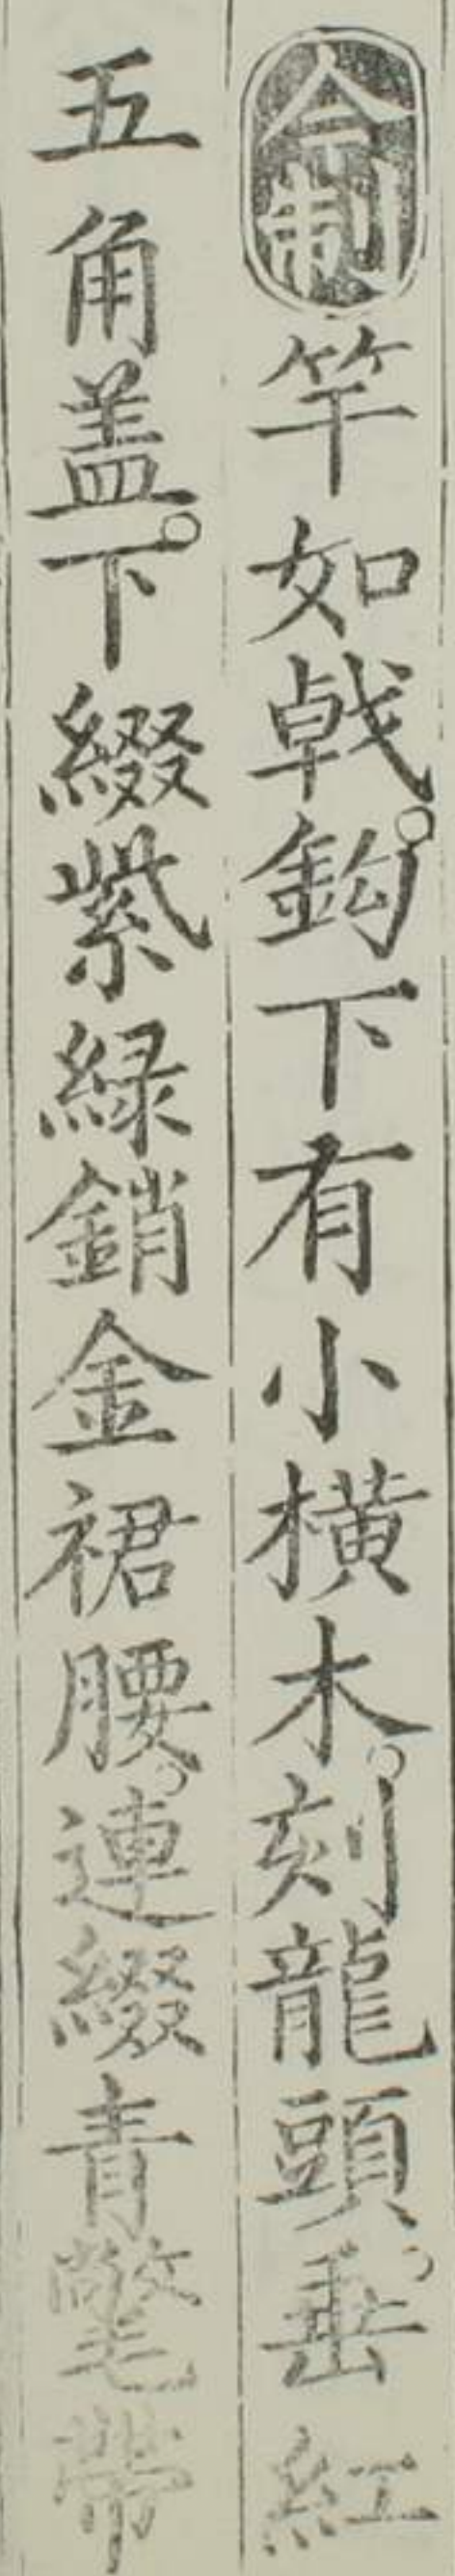 今制竿如戟。鈎下有小橫木。刻龍頭。垂紅
五角盖。下綴紫綠銷金裙腰。連綴青氅帶